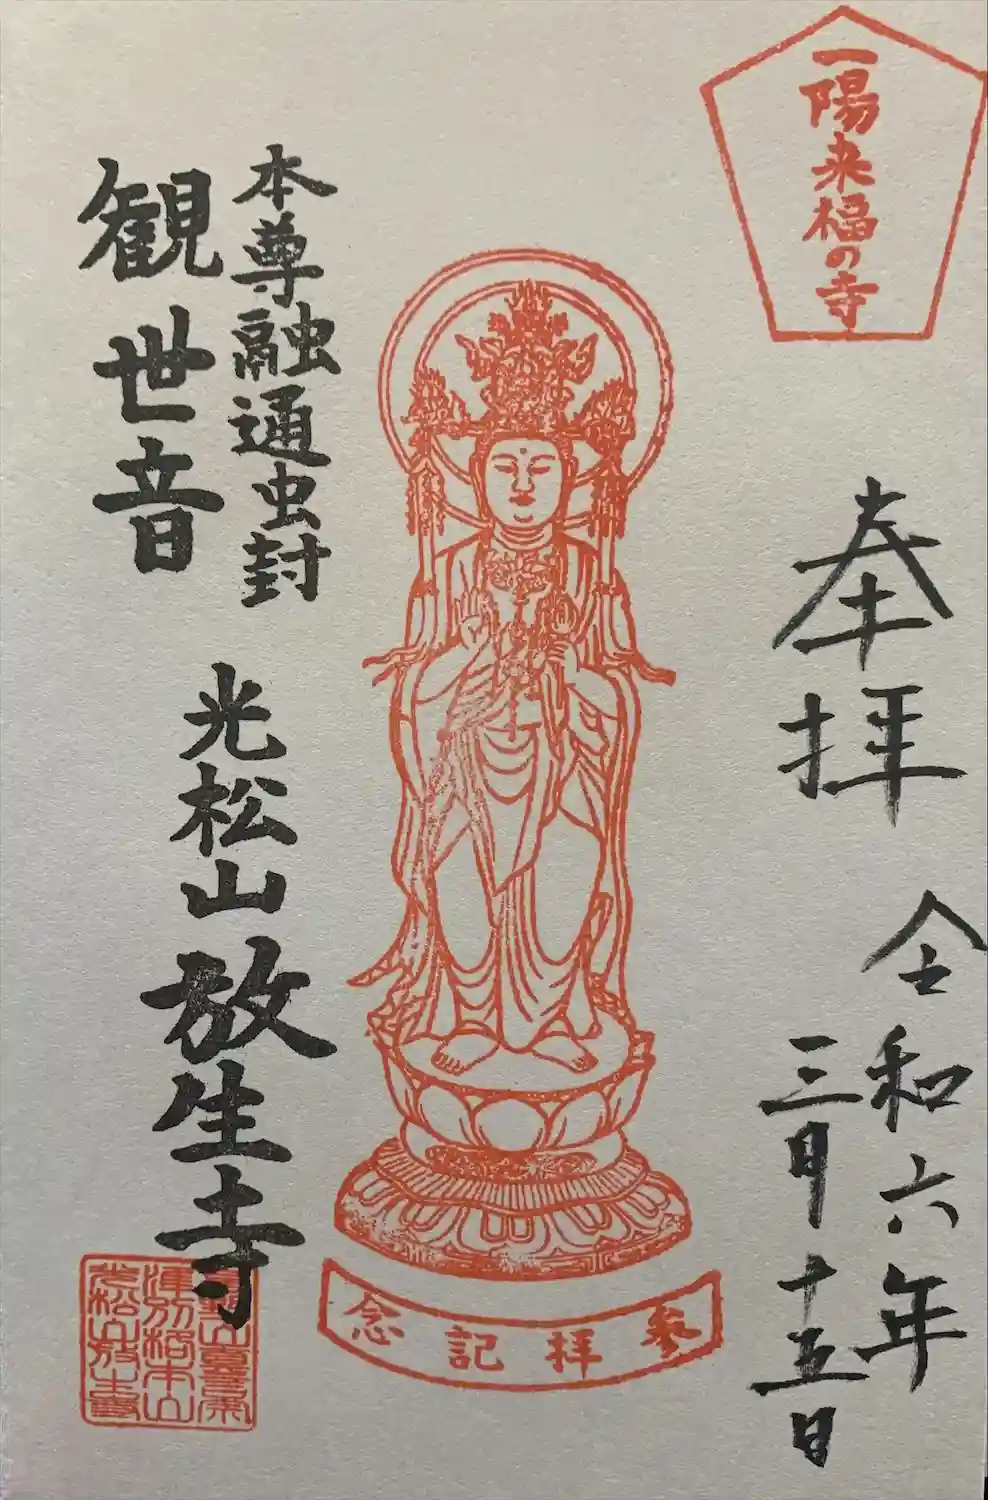 一陽来福の寺
奉拝
令和六年
三月十五日
本尊融通虫封
観世音
光松山放生寺
参拝記念